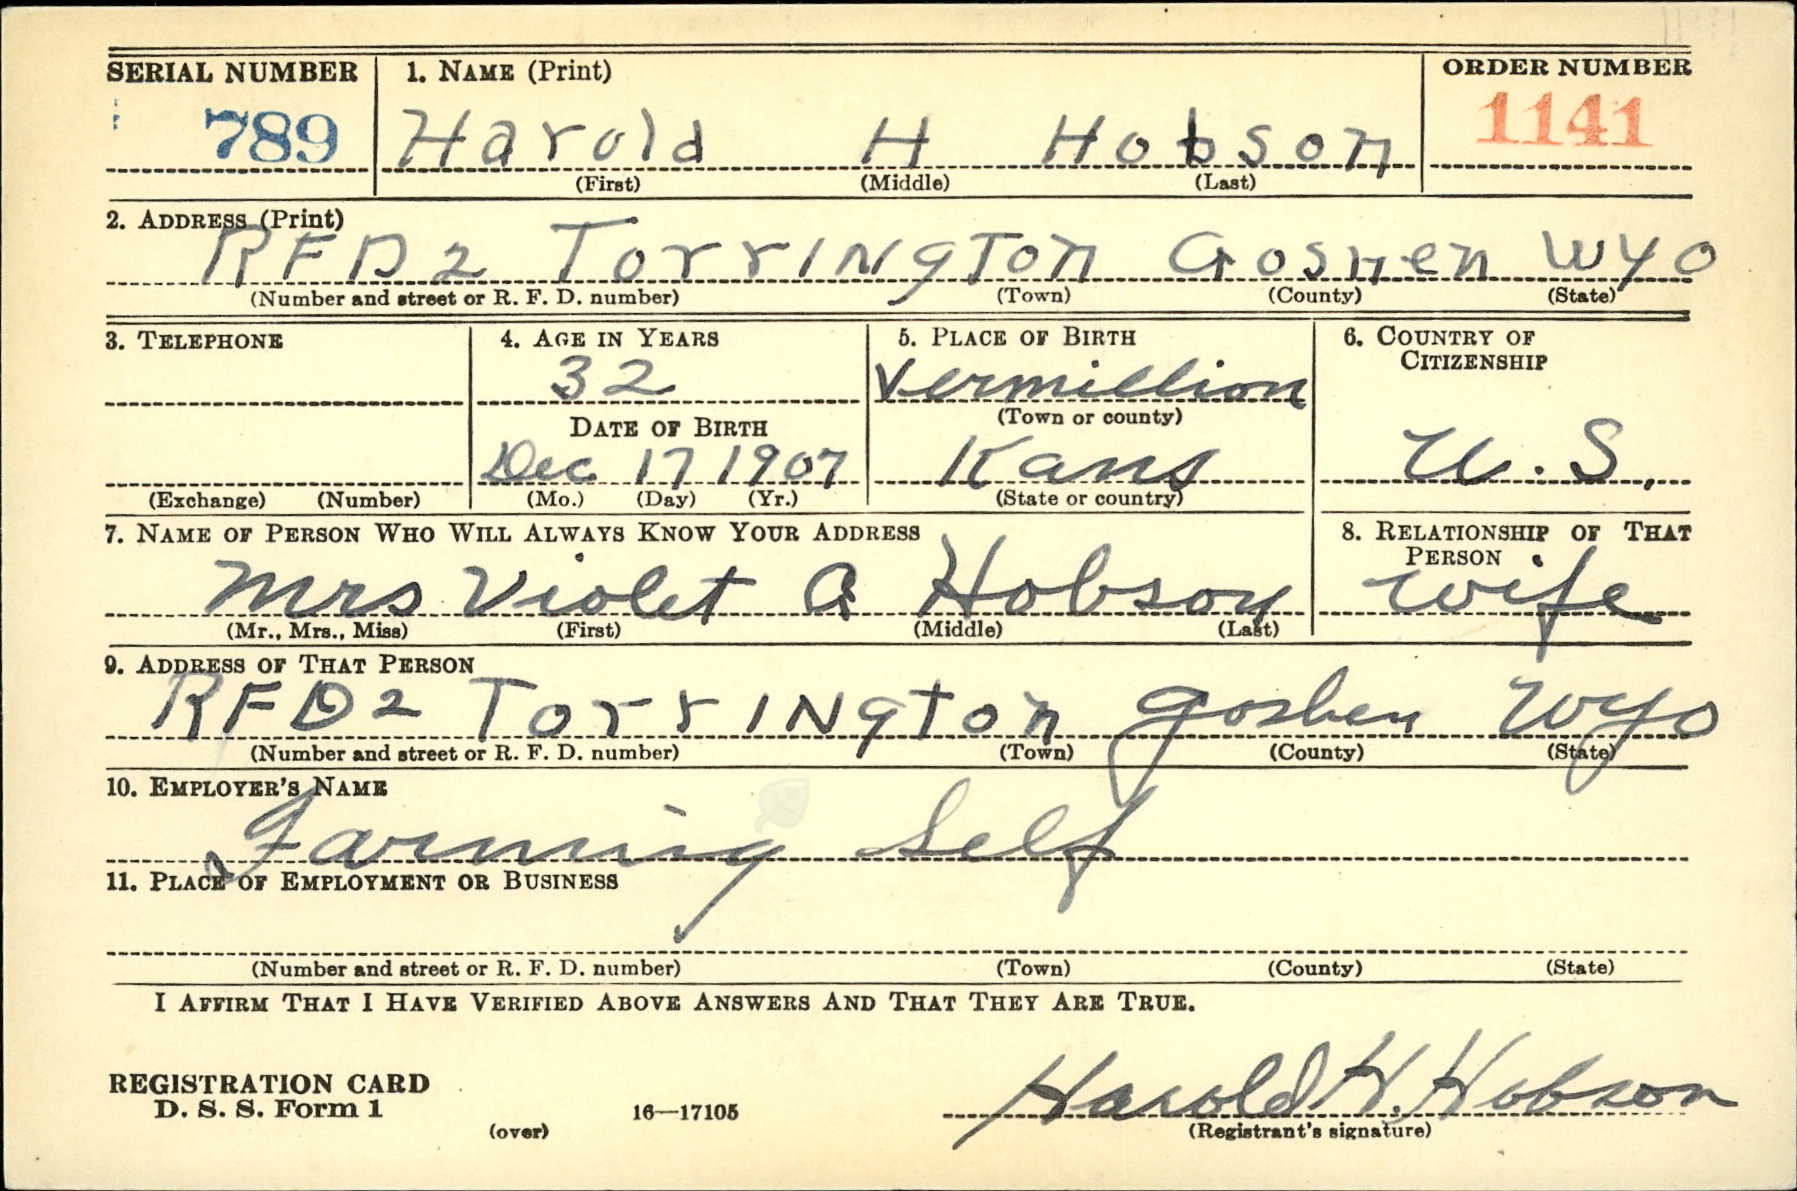 SERIAL NUMBER 1. NAME (Print) ORDER NUMBER
789 Harold H Hobson 1141
(First) (Middle) (Last)
2. ADDRESS (Print)
RFD2 Torrington Goshen WYO
(Number and street or R. F. D. number) (Town) (County) (State)
3. TELEPHONE 4. AGE IN YEARS 5. PLACE OF BIRTH 6. COUNTRY OF CITIZENSHIP
32 Vermillion
(Town or county)
DATE OF BIRTH
Dec 17 1907 Kans U.S.
(Exchange) (Number) (Mo.) (Day) (Yr.) (State or country)
7. NAME OF PERSON WHO WILL ALWAYS KNOW YOUR ADDRESS 8. RELATIONSHIP OF THAT PERSON
Mrs Violet A Hobson wife
(Mr., Mrs., Miss) (First) (Middle) (Last)
9. ADDRESS OF THAT PERSON
RFD2 Torrington Goshen Wyo
(Number and street or R. F. D. number) (Town) (County) (State)
10. EMPLOYER'S NAME
Farming Self
11. PLACE OF EMPLOYMENT OR BUSINESS
(Number and street or R. F. D. number) (Town) (County) (State)
I AFFIRM THAT I HAVE VERIFIED ABOVE ANSWERS AND THAT THEY ARE TRUE.
REGISTRATION CARD
D. S. S. Form 1 16—17105 Harold H. Hobson
(over) (Registrant's signature)